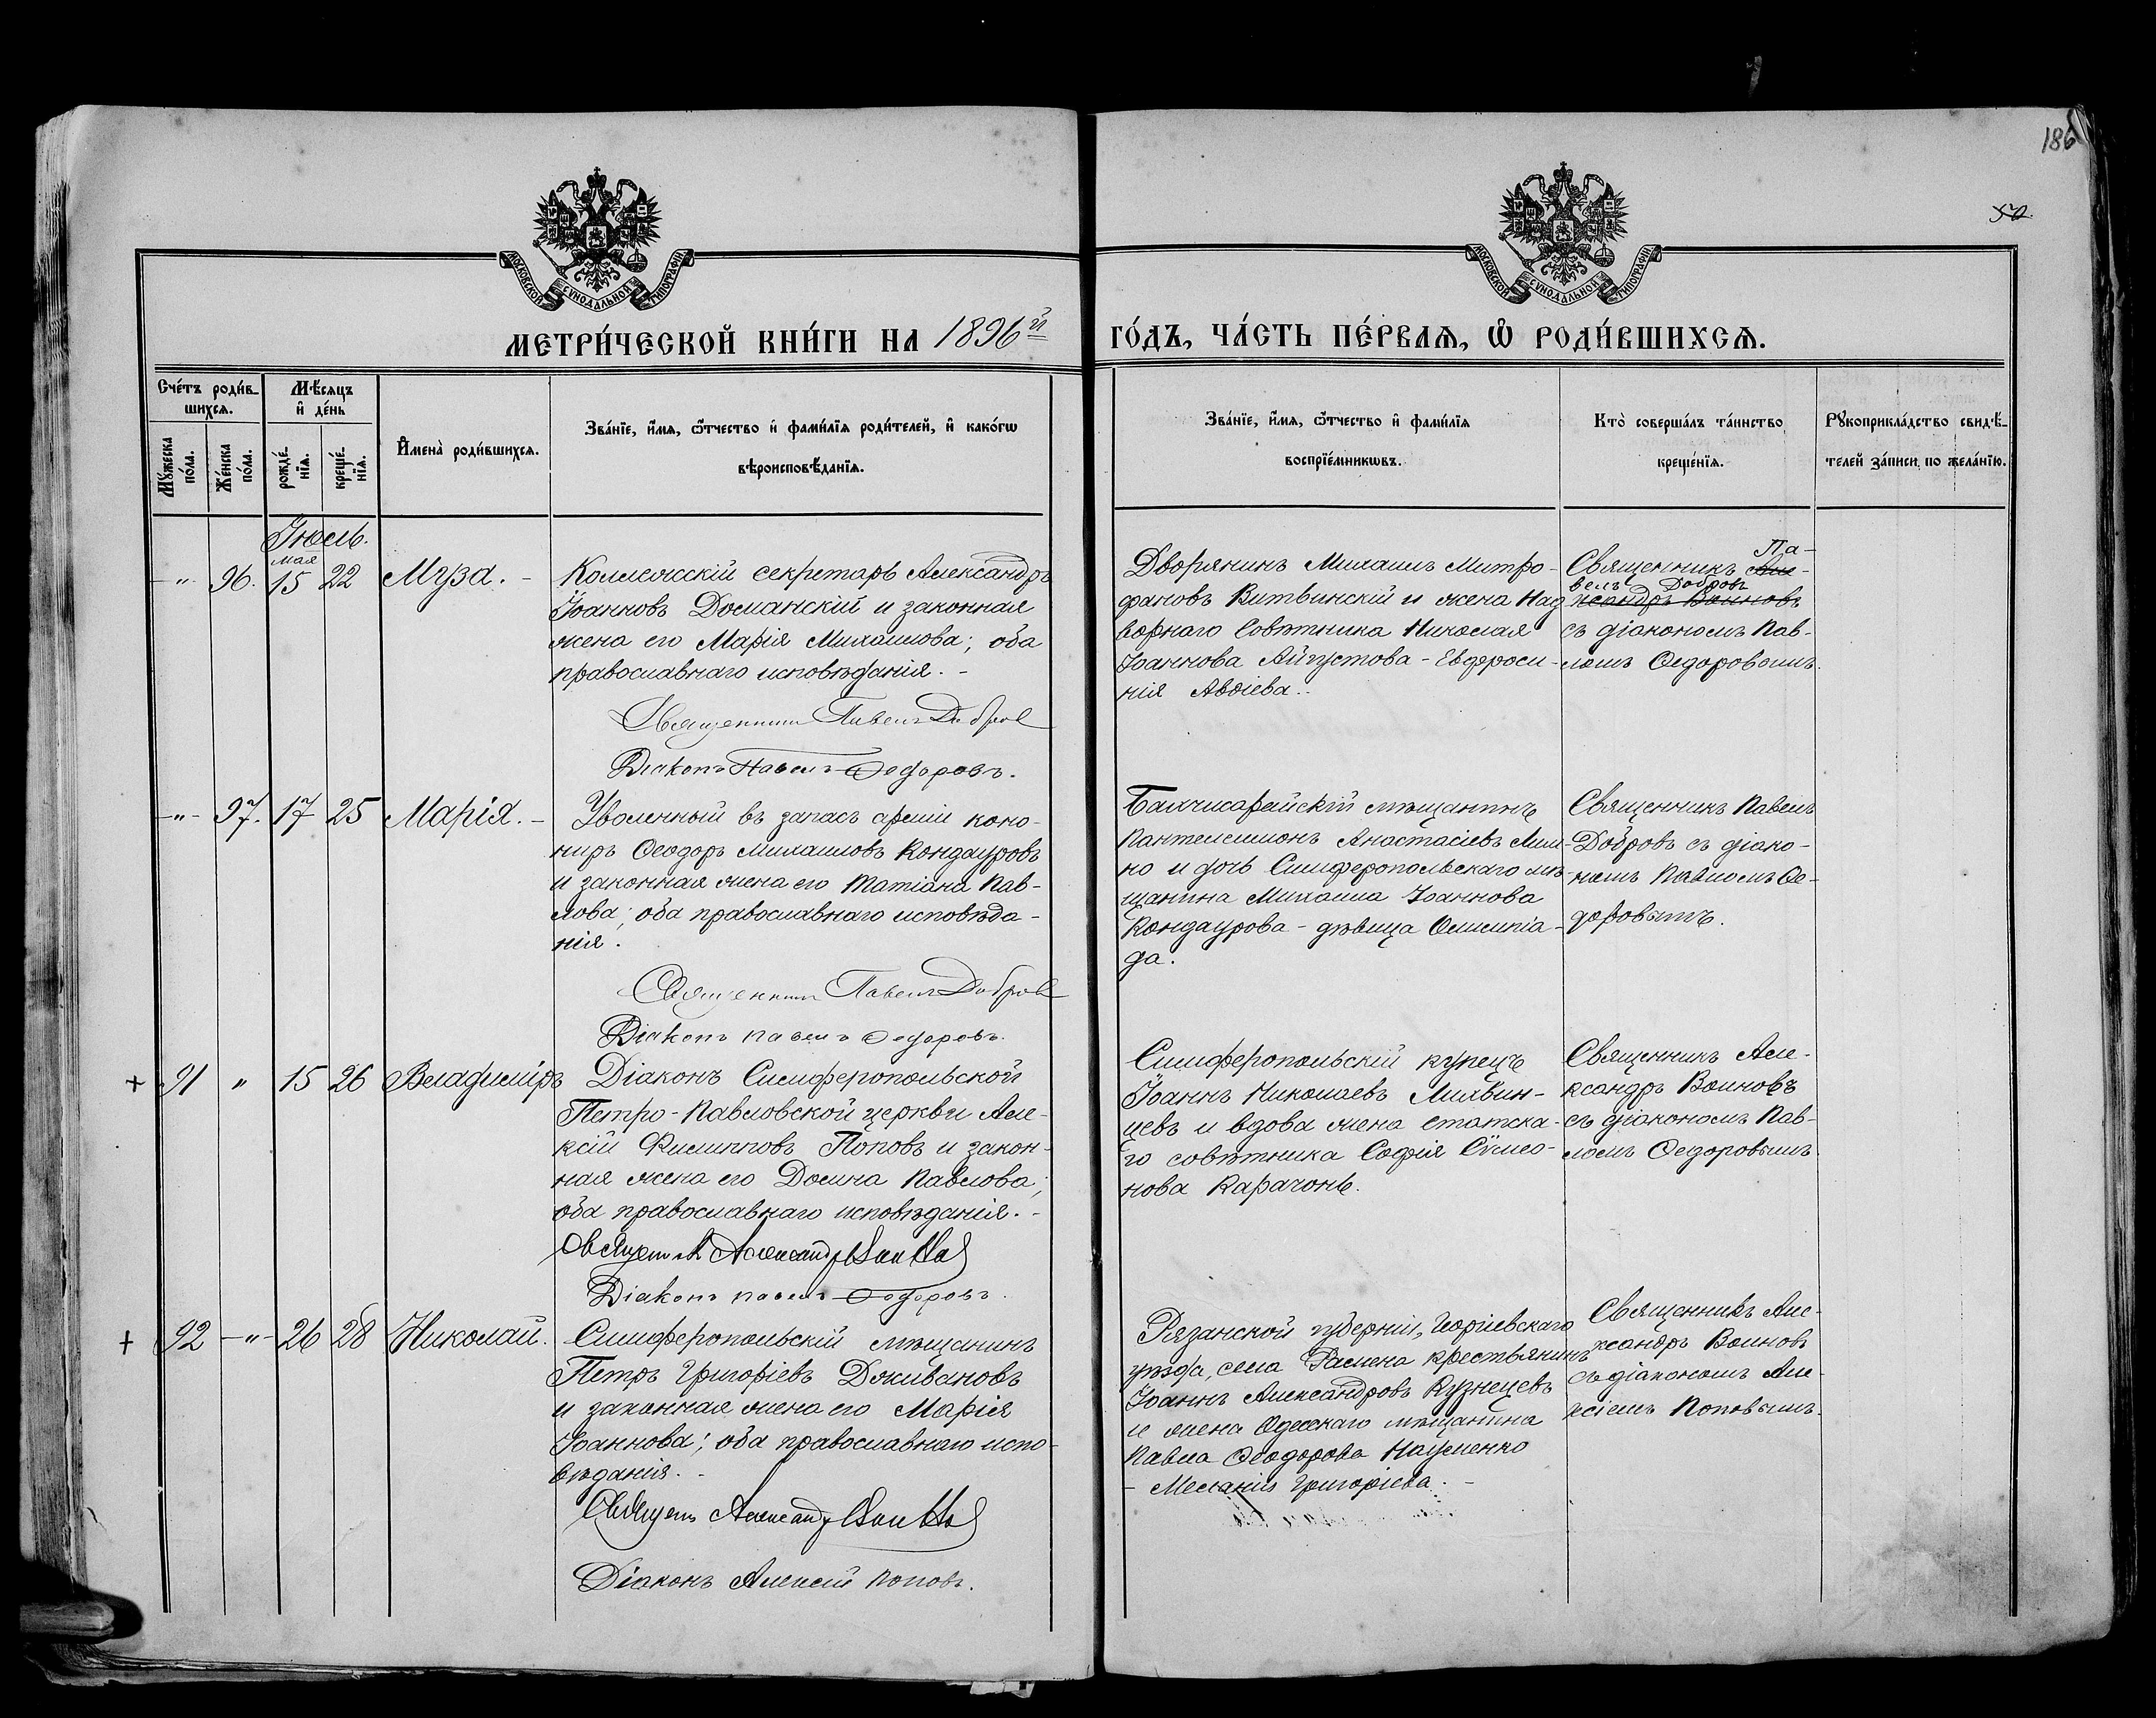 186
МОСКОВСКОЙ СУНОДАЛЬНОЙ ТИПОГРАФІИ
МОСКОВСКОЙ СУНОДАЛЬНОЙ ТИПОГРАФІИ
МЕТРИ́ЧЕСКОЙ КНИ́ГИ НА 1896й ГО́ДЪ, ЧА́СТЬ ПЕ́РВАѦ, Ѡ РОДИ́ВШИХСѦ.
Сче́тъ роди́в-
шихсѧ.
Мѣ́сѧцъ
и де́нь
Мꙋ́жеска
по́ла.
Же́нска
по́ла.
рожде́-
нїѧ.
креще́-
нїѧ.
И҆мена̀ роди́вшихсѧ.
Зва́нїе, и҆́мѧ, ѻ҆́тчество и҆ фами́лїѧ роди́телей, и҆ како́гѡ
вѣроисповѣ́данїѧ.
Зва́нїе, и҆́мѧ, ѻ҆́тчество и҆ фами́лїѧ
воспрїе́мникѡвъ.
Кто̀ соверша́лъ та́инство
креще́нїѧ.
Рꙋкоприкла́дство свидѣ́-
телей за́писи по жела́нїю.
Іюль.
мая
-"- 96. 15 22 Муза. -
Коллежскій секретарь Александръ
Іоанновъ Доманскій и законная
жена его Марія Михаилова; оба
православнаго исповѣданія. -
Священникъ Павелъ Добровъ
Діаконъ Павелъ Ѳедоровъ.
Дворянинъ Михаилъ Митро-
фановъ Витвинскій и жена Над
ворнаго Совѣтника Николая
Іоаннова Августова - Евфроси-
нія Авдіева..
Священникъ Па-
велъ Добровъ
ксандръ Воиновъ
съ діакономъ Пав-
ломъ Ѳедоровымъ.
-"- 97. 17 25 Марія. -
Уволенный въ запасъ арміи коно-
ниръ Ѳеодоръ Михаиловъ Кондауровъ
и законная жена его Татіана Пав-
лова; оба православнаго исповѣда-
нія.
Священникъ Павелъ Добровъ
Діаконъ Павелъ Ѳедоровъ.
Бахчисарайскій мѣщанинъ
Пантелеимонъ Анастасіевъ
но и дочь Симферопольскаго мѣ-
щанина Михаила Іоаннова
Кондаурова - дѣвица Олимпіа-
да.
Священникъ Павелъ
Добровъ съ діако-
номъ Павломъ Ѳе-
доровымъ.
+ 91 " 15 26 Владиміръ
Діаконъ Симферопольской
Петро-Павловской церкви Але-
ксій Филипповъ Поповъ и закон-
ная жена его Домна Павлова;
оба православнаго исповѣданія. -
Священникъ Александръ Воиновъ
Діаконъ Павелъ Ѳедоровъ.
Симферопольскій купецъ
Іоаннъ Николаевъ Лихвин-
цевъ и вдова жена статска-
го совѣтника Софія Сѵмео-
нова Карагонъ.
Священникъ Але-
ксандръ Воиновъ
съ діакономъ Пав-
ломъ Ѳедоровымъ
+ 92 -"- 26 28 Николай.
Симферопольскій мѣщанинъ
Петръ Григоріевъ Дживановъ
и законная жена его Марія
Іоаннова; оба православнаго испо-
вѣданія. -
Священ. Александръ Воиновъ
Діаконъ Алексій Поповъ.
Рязанской губерніи, Егоріевскаго
уѣзда, села Рамена крестьянинъ
Іоаннъ Александровъ Кузнецевъ
и жена Одесскаго мѣщанина
Павла Ѳеодорова Науменко
- Меланія Григоріева. -
Священникъ Але-
ксандръ Воиновъ
съ діакономъ Але-
ксіемъ Поповымъ.